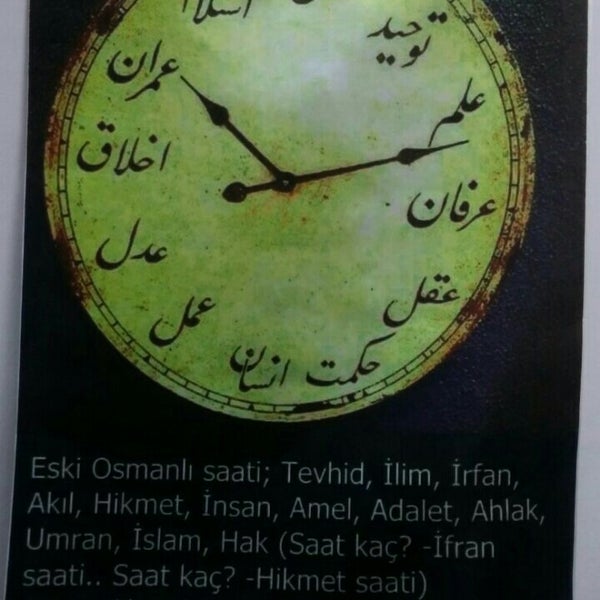 اسلا
توحید
علم
عرفان
عقل
حکمت
انسان
عمل
عدل
اخلاق
عمران
Eski Osmanlı saati; Tevhid, İlim, İrfan,
Akıl, Hikmet, İnsan, Amel, Adalet, Ahlak,
Umran, İslam, Hak (Saat kaç? -İfran
saati.. Saat kaç? -Hikmet saati)